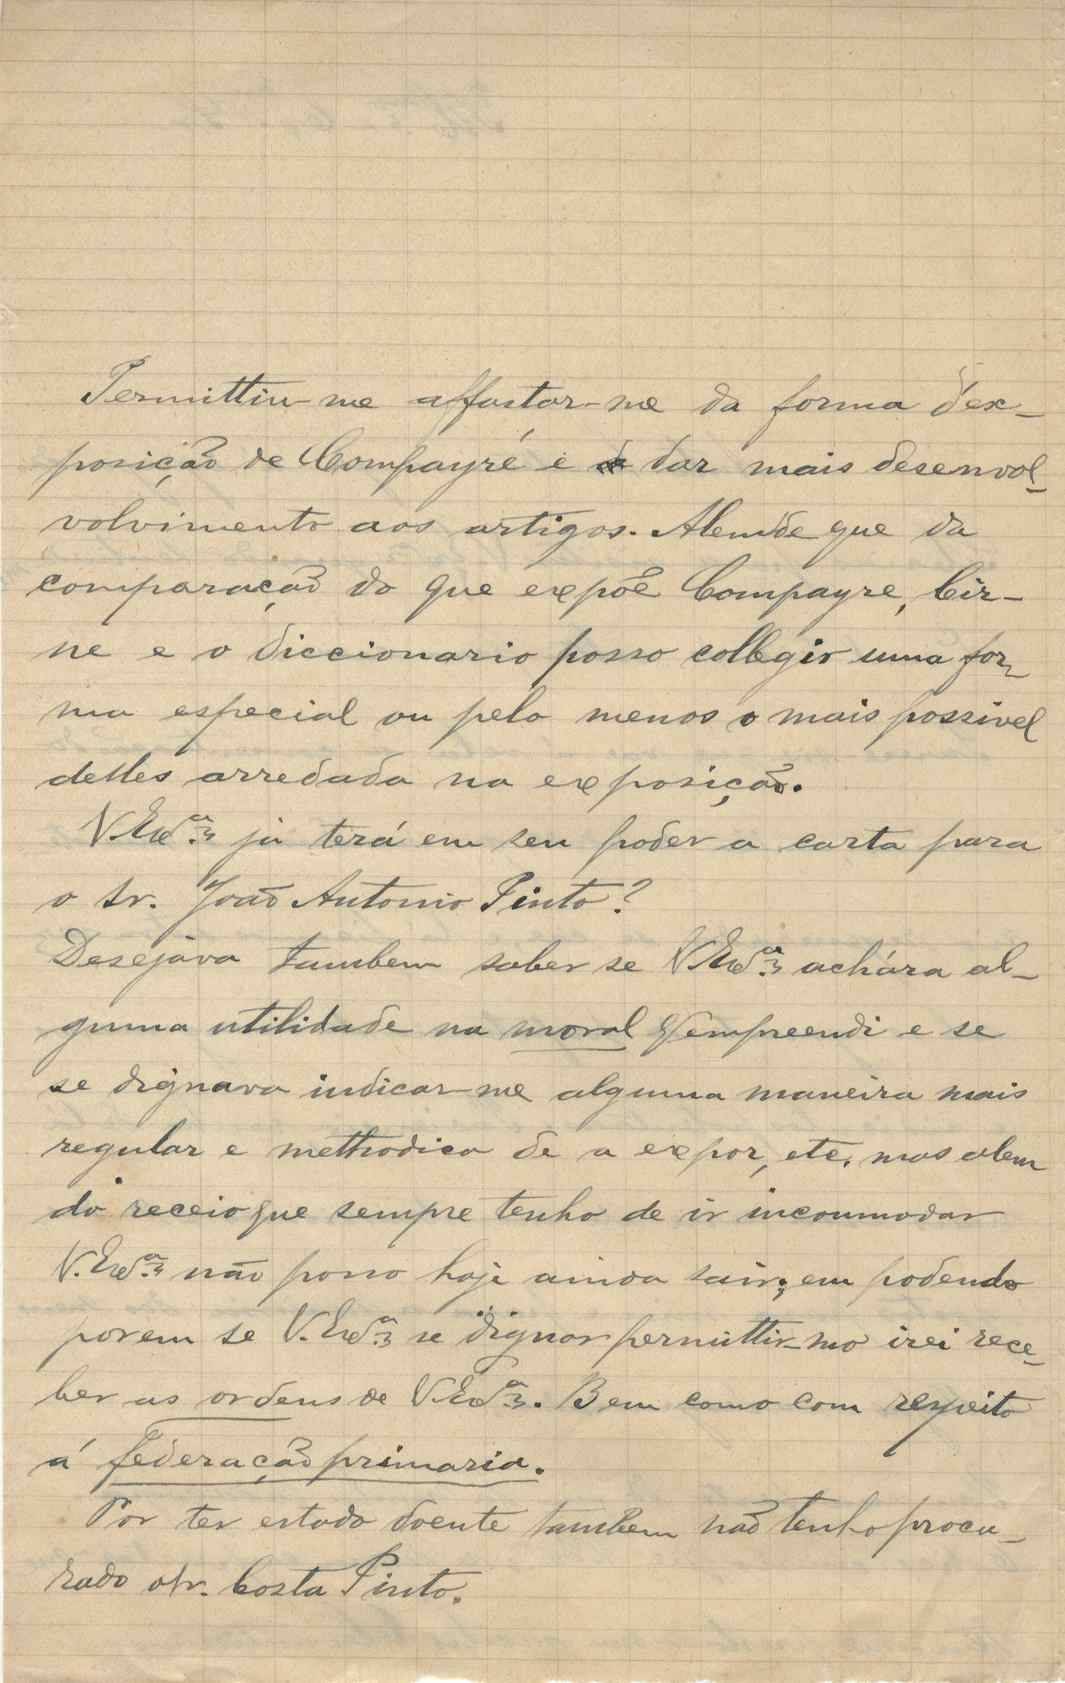 Permittiu-me affastar-me da forma d'ex-
posição de Compayré e dar mais desenvol-
volvimento aos artigos. Alem de que da
comparação do que expõe Compayre, Cir-
ne e o diccionario posso collegir uma for-
ma especial ou pelo menos o mais possivel
delles arredada na exposição.
V. Ex.cia já terá em seu poder a carta para
o sr. João Antonio Pinto?
Desejava tambem saber se V. Ex.cia achára al-
guma utilidade na moral q empreendi e se
se dignava indicar-me alguma maneira mais
regular e methodica de a expor, etc, mas alem
do receio que sempre tenho de ir incommodar
V. Ex.cia não posso hoje ainda sair; em podendo
porem se V. Ex.cia se dignar permittir-mo irei rece-
ber as ordens de V. Ex.cia. Bem como com respeito
á federação primaria.
Por ter estado doente tambem não tenho procu-
rado o sr. Costa Pinto.